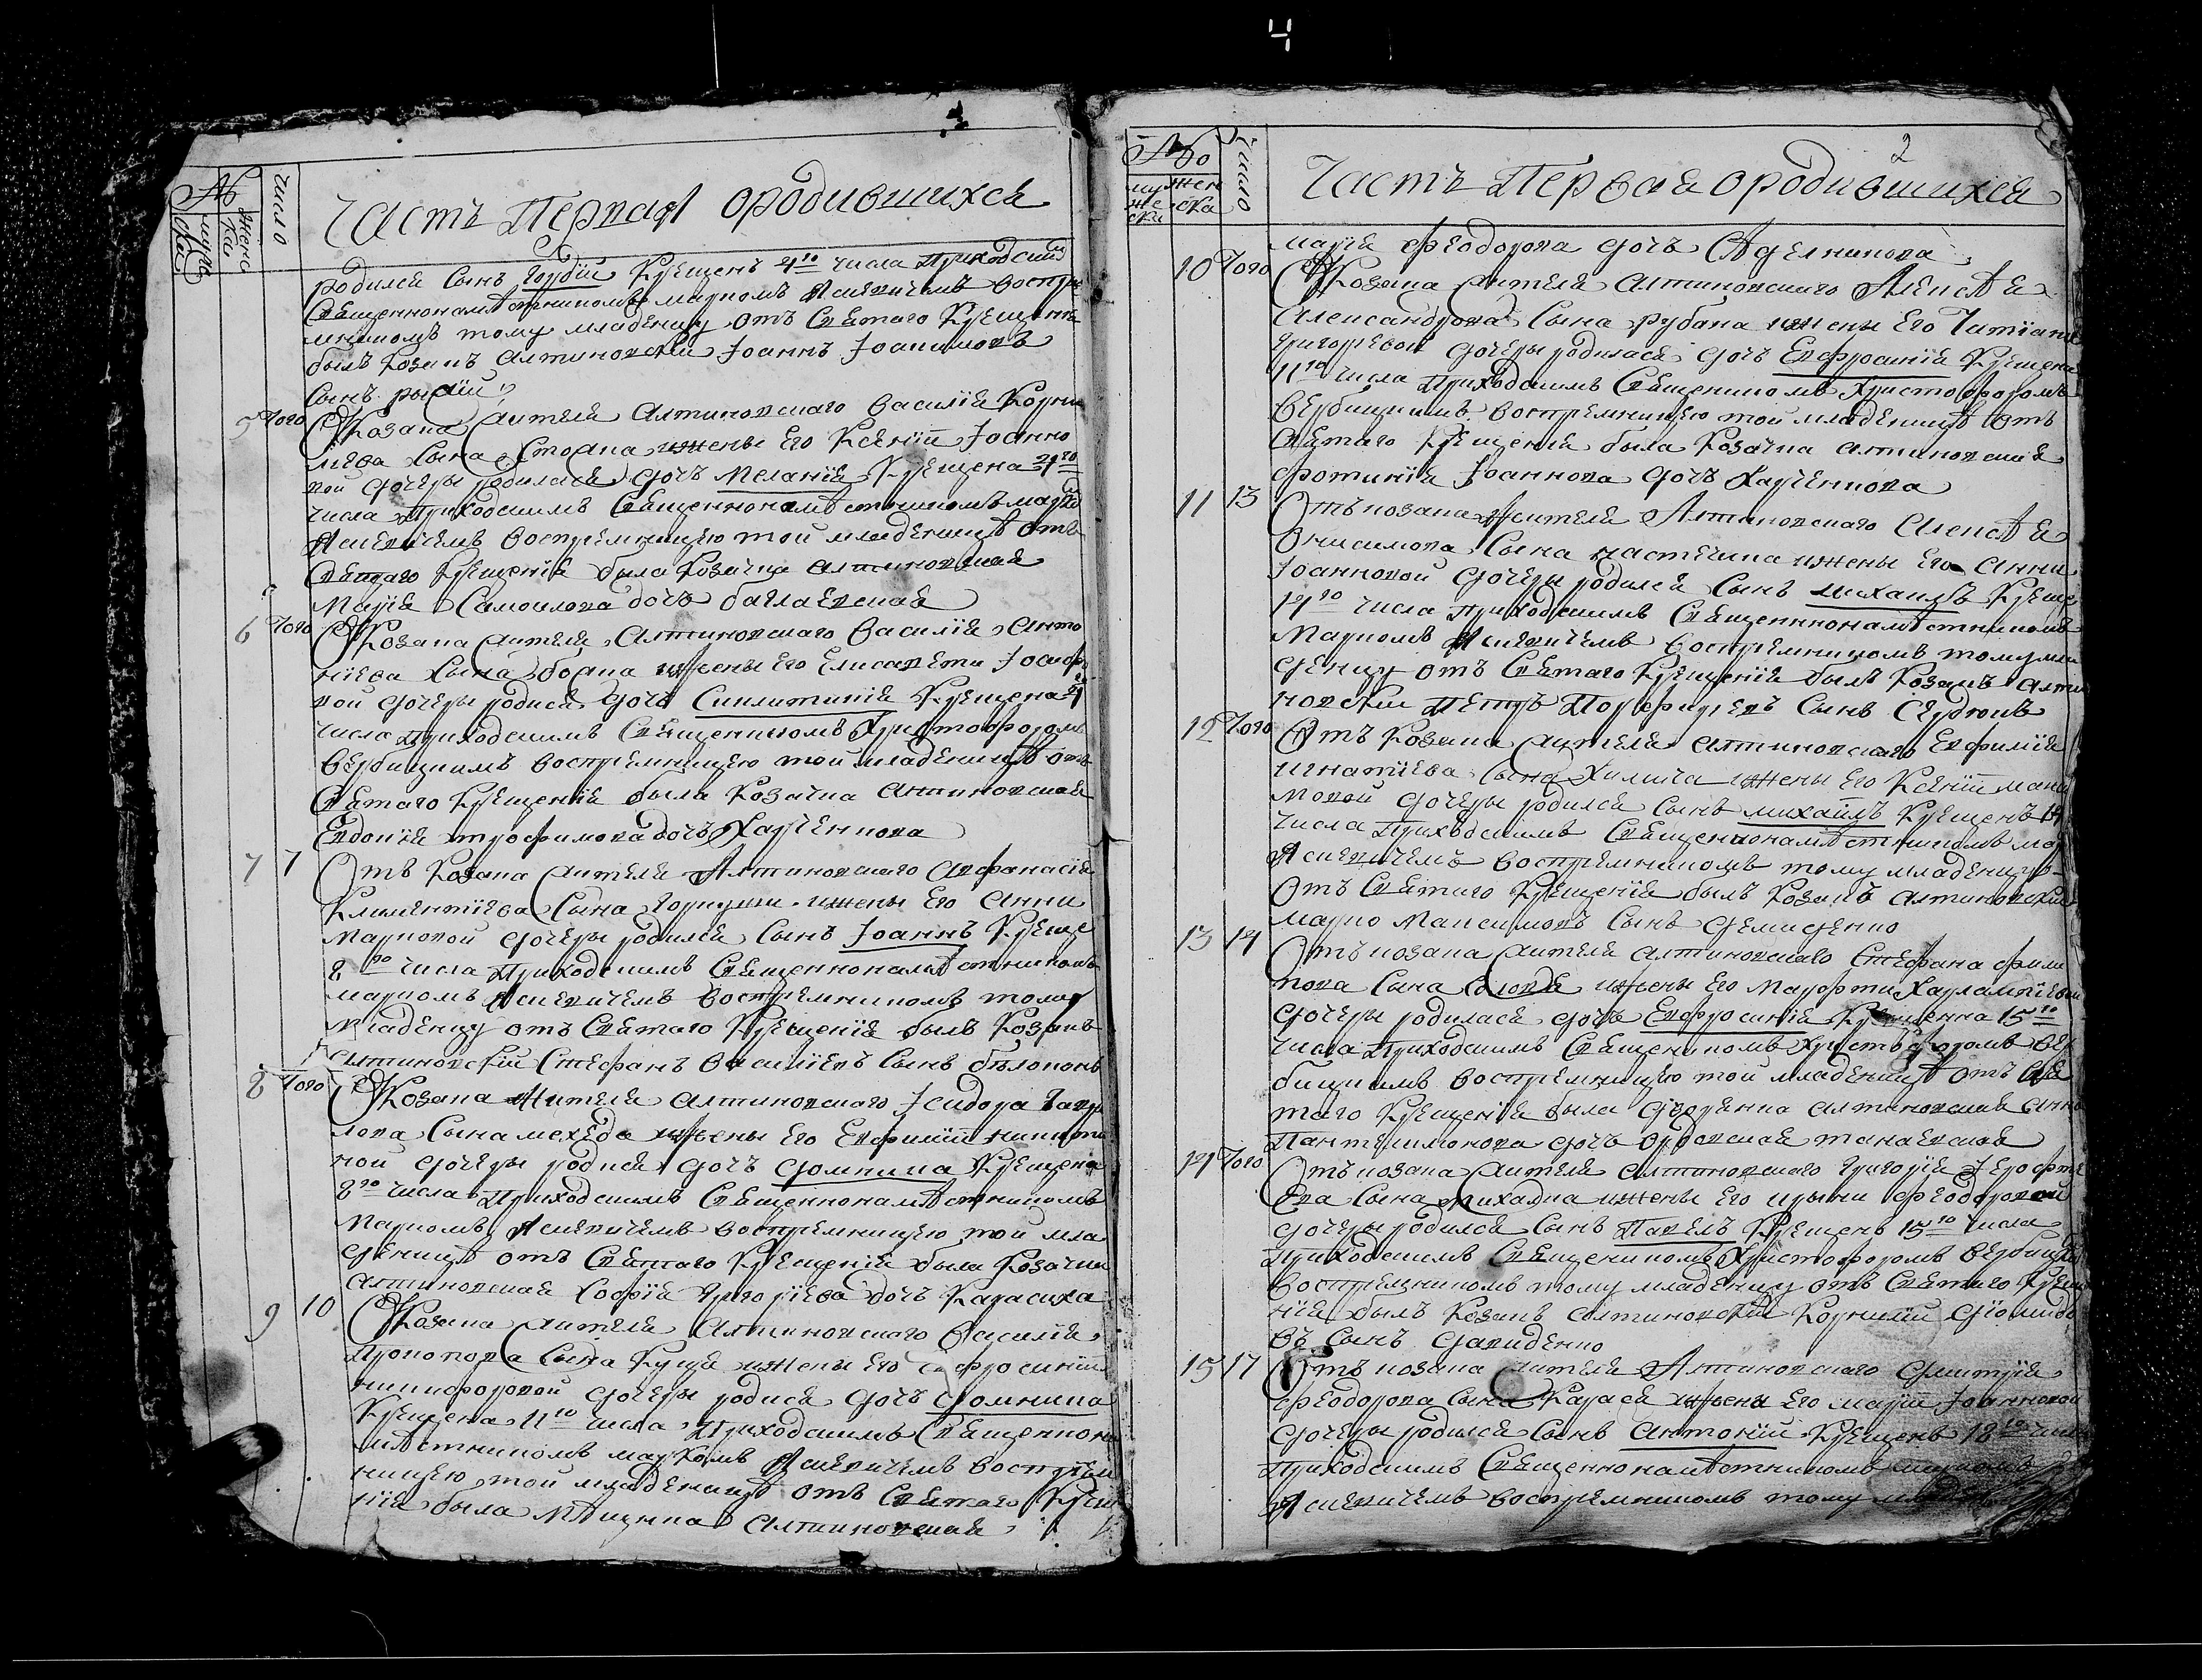 4
№
мужска
женска
число
Часть Первая ородившихся
родился Сынъ Гордій Крещенъ 4го числа Приходским
Священнонамѣстникомъ маркомъ Ясневичемъ Воспріе
мникомъ тому младенцу отъ Святаго Крещенія
былъ Козакъ алтиновскій Іоаннъ Іоакимовъ
Сынъ
5 Того ѿ Козака жителя алтиновскаго Василія Корни
лиева Сына Стоана ижены Его Ксеніи Іоанно
вой дочеры родилася дочъ Меланія Крещена 4го
числа Приходскимъ Священнонамѣстникомъ маркомъ
Ясневичемъ Воспріемницею той младеницѣ отъ
Святаго Крещенія была Козачка алтиновская
Марія Самоилова дочъ баглаевская
6 Того ѿ Козака жителя алтиновскаго Василія Анто
ніева Сына боана ижены Его Елисавети Іосифо
вой дочеры родися дочъ Синклитикія Крещена 4го
числа Приходскимъ Священникомъ Христофоромъ
Вербицкимъ воспріемницею той младеницѣ отъ
Святаго Крещенія была Козачка алтиновская
Евдокія трофимова дочъ Харченкова
7 7 Отъ Козака жителя Алтиновскаго Афанасія
Климентіева Сына Горкуши ижены Его Анни
Марковой дочеры родился Сынъ Іоаннъ Креще
8го числа Приходскимъ Священнонамѣстникомъ
маркомъ Ясневичемъ воспріемникомъ тому
младенцу отъ Святаго Крещенія былъ Козакъ
алтиновскій Стефанъ Василіевъ Сынъ бѣлоконь
8 Того ѿ Козака Жителя алтиновскаго Ісидора Гаври
лова Сына мехеда ижены Его Евфиміи никити
ной дочеры родися дочъ Домникиа Крещена
8го числа Приходскимъ Священнонамѣстникомъ
Маркомъ Ясневичемъ воспріемницею той мла
деницѣ отъ Святаго Крещенія была Козачка
алтиновская Софія Григоріева дочъ Карасиха
9 10 ѿ Козака жителя алтиновскаго Василія
Прокопова Сына Куца ижены Его Ефросиніи
никифоровой дочеры родися дочъ Домникиа
Крещена 11го числа Приходскимъ Священнона
мѣстникомъ маркомъ Ясневичемъ воспріем
ницею той младеницѣ отъ Святаго Креще
нія была мѣщанка алтиновская
2
№
мужеска
женска
Число
Часть Первая ородившихся
марія феодорова дочъ Сѣделникова
10 Того ѿ Козака жителя алтиновскаго Алексѣя
Александрова Сына рубана ижены Его Татіани
григоревой дочеры родилася дочъ Евфросинія Крещена
11го числа Приходскимъ Священникомъ Христофоромъ
Вербицкимъ воспріемницею той младеницѣ отъ
Святаго Крещенія была Козачка алтиновская
фотинія Іоаннова дочъ Харченкова
11 13 Отъ козака Жителя Алтиновскаго Алексѣя
Онисимова Сына настечина ижены Его Анни
Іоанновой дочеры родился Сынъ михаилъ Креще
14го числа Приходскимъ Священнонамѣстникомъ
Маркомъ Ясневичемъ воспріемникомъ тому мла
денцу отъ Святаго Крещенія былъ Козакъ алти
новскій Петръ Порфиріевъ Сынъ Сердюкъ
12 Того Отъ Козака жителя алтиновскаго Евфимія
игнатіева Сына Химича ижены Его Ксеніи макси
мовой дочеры родился Сынъ михаилъ Крещенъ 14
числа Приходскимъ Священнонамѣстникомъ мар
Ясневичемъ воспріемникомъ тому младенцу
Отъ Святаго Крещенія былъ Козакъ алтиновскій
марко Максимовъ Сынъ демиденко
13 14 Отъ козака жителя алтиновскаго Стефана фили
пова Сына ижены Его Марфи Харлампіевы
дочеры родилася дочъ Евфросинія Крещенна 15го
числа Приходскимъ Священникомъ Христофоромъ Вер
бицкимъ воспріемницею той младеницѣ отъ Свя
таго Крещенія была дворянка алтиновская Анна
Пантелимонова дочъ
14 Того Отъ козака жителя алтиновскаго Григорія Іерофте
ева Сына михалка ижены Его ирини феодоровой
дочеры родился Сынъ Павелъ Крещенъ 15го числа
Приходскимъ Священникомъ Христофоромъ Вербицки
воспріемникомъ тому младенцу отъ Святаго Креще
нія былъ Козакъ алтиновскій Корнилій діомидо
въ Сынъ давиденко
15 17 Отъ козака жителя Алтиновскаго Димитрія
феодорова Сына Карася ижены Его маріи Іоанновой
дочеры родился Сынъ Антоній Крещенъ 18го числ
Приходскимъ Священнонамѣстникомъ маркомъ
Ясневичемъ воспріемникомъ тому